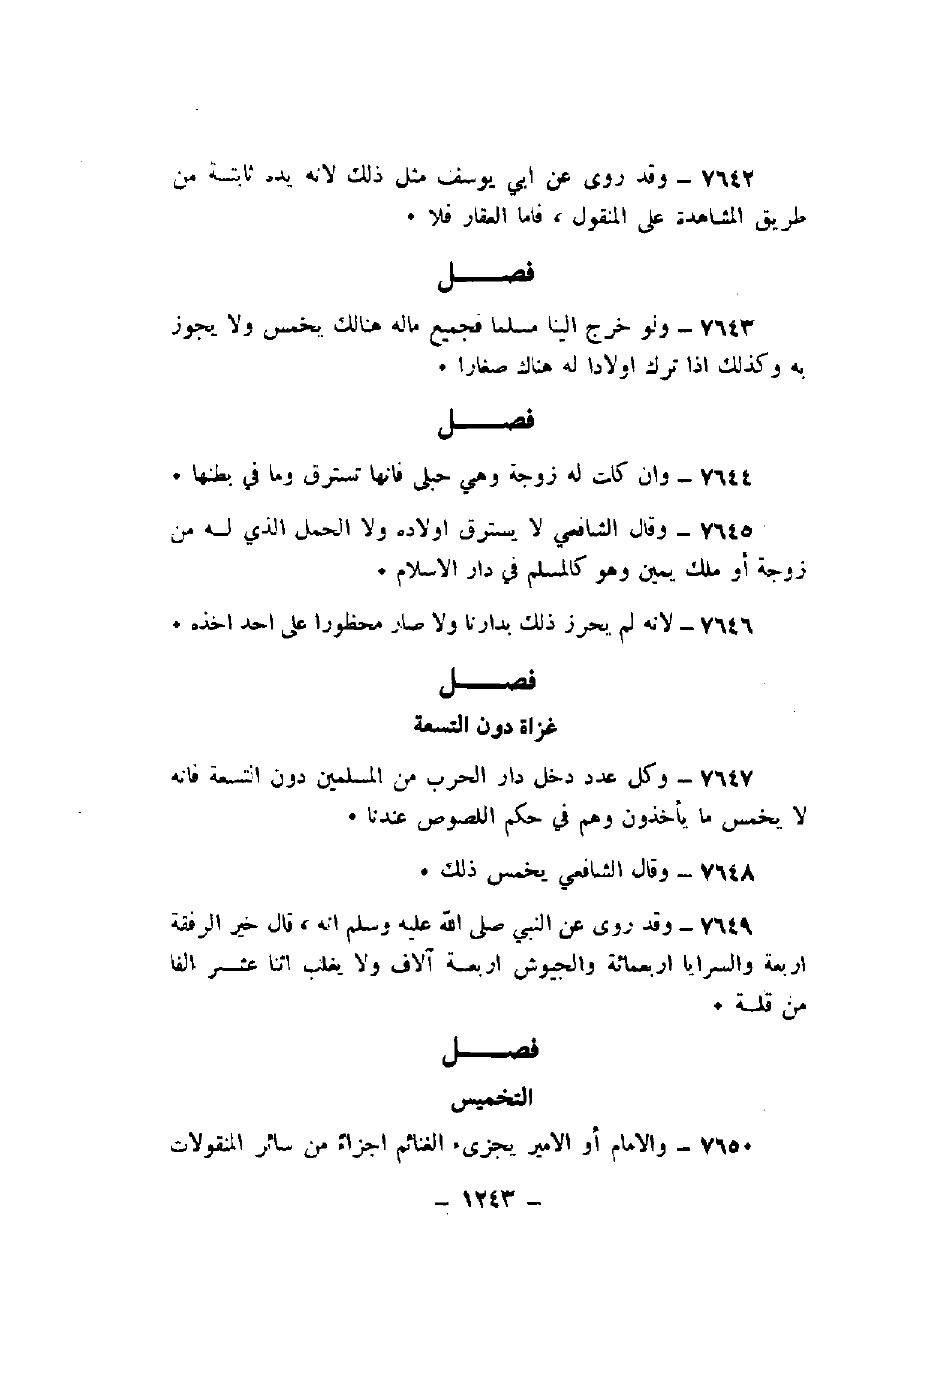 ٧٦٤٢ – وقد روى عن ابي يوسف مثل ذلك لانه يده ثابتة من
طريق المشاهدة على المنقول ، فاما العقار فلا ٠
فصل
٧٦٤٣ – ولو خرج الينا مسلما فجميع ماله هنالك يخمس ولا يجوز
به وكذلك اذا ترك اولادا له هناك صغارا ٠
فصل
٧٦٤٤ – وان كات له زوجة وهي حبلى فانها تسترق وما في بطنها ٠
٧٦٤٥ – وقال الشافعي لا يسترق اولاده ولا الحمل الذي له من
زوجة أو ملك يمين وهو كالمسلم في دار الاسلام ٠
٧٦٤٦ – لانه لم يحرز ذلك بدارنا ولا صار محظورا على احد اخذه ٠
فصل
غزاة دون التسعة
٧٦٤٧ – وكل عدد دخل دار الحرب من المسلمين دون التسعة فانه
لا يخمس ما يأخذون وهم في حكم اللصوص عندنا ٠
٧٦٤٨ – وقال الشافعي يخمس ذلك ٠
٧٦٤٩ – وقد روى عن النبي صلى الله عليه وسلم انه ، قال خير الرفقة
اربعة والسرايا اربعمائة والجيوش اربعة آلاف ولا يغلب اثنا عشر الفا
من قلة ٠
فصل
التخميس
٧٦٥٠ – والامام أو الامير يجزىء الغنائم اجزاءً من سائر المنقولات
– ١٢٤٣ –